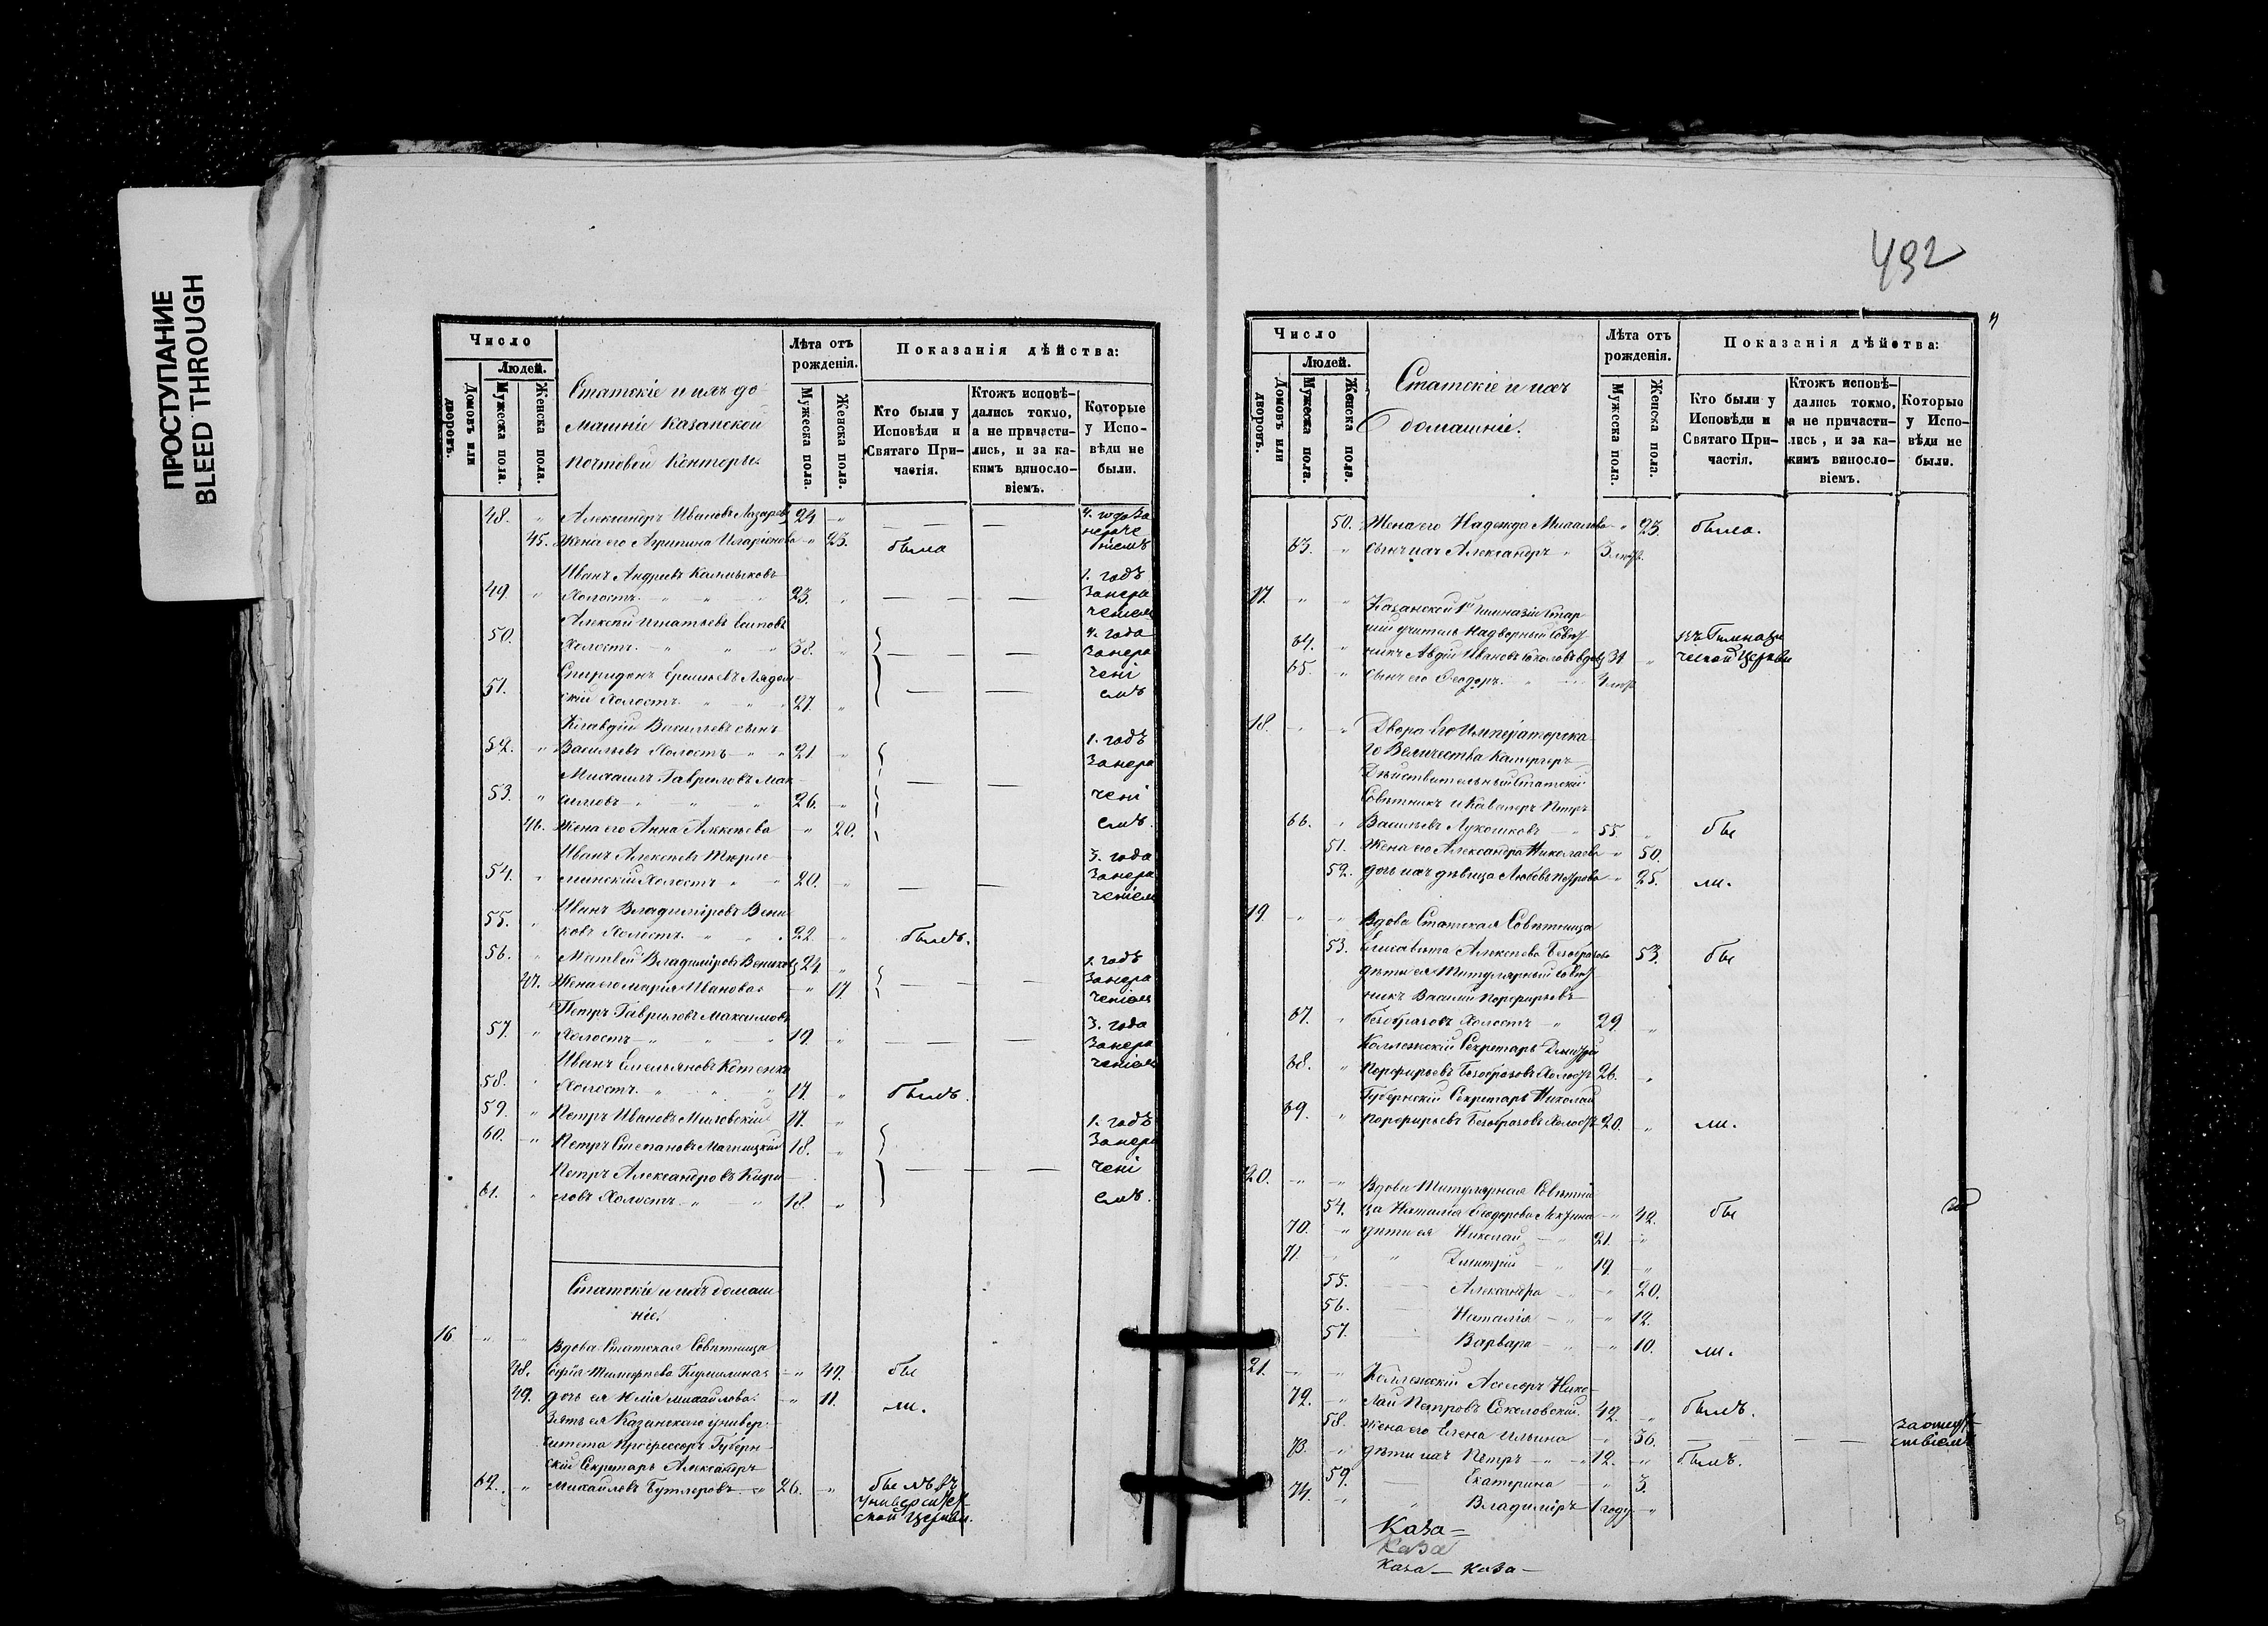 ПРОСТУПАНИЕ
BLEED THROUGH
492
Число
Людей.
Домовъ или дворовъ.
Мужеска пола.
Женска пола.
Статскіе и ихъ до-
машніе Казанской
почтовой Конторы.
Лѣта отъ рожденія.
Мужеска пола.
Женска пола.
Показанія дѣйства:
Кто были у Исповѣди и Святаго Причастія.
Ктожъ исповѣдались токмо, а не причастились, и за какимъ винословіемъ.
Которые у Исповѣди не были.
48. " Александръ Ивановъ Лазаревъ 24 " — — 4. года за
нераче
45. Жена его Агрипина Иларіонова " 23. была ніемъ
Иванъ Андреевъ Калмыковъ 1. годъ
49. " Холостъ. " " 23. " — — занера
ченіем
Алексѣй Игнатьевъ Осиповъ
50. Холостъ. " " " 38. " — — 4. года
занера
Спиридонъ Ераст Лядом- чені
51. скій Холостъ. " " 27. " — — емъ
Клавдій Васильевъ сынъ
52. " Васильевъ Холостъ " " 21 " 1. годъ
занера
Михаилъ Гавриловъ Мак-
53. " симовъ " " " 26. " — — чені
46. Жена его Анна Алексѣева — " 20. емъ.
Иванъ Алексѣевъ Тюрле- 3. года
54. " минскій Холостъ " " 20. " — — занера
ченіем
Иванъ Владиміровъ Вени-
55. " ковъ Холостъ. " " 22. " былъ.
56. " Матвей Владиміровъ Вениковъ 24 " 1. годъ
47. Жена его Марія Иванова — " 17. — — занера
ченіем
Петръ Гавриловъ Максимовъ
57. " Холостъ " " " 19. " — — 3. года
занера
Иванъ Емельяновъ Котенко ченіем
58. " Холостъ. " " " 17. " былъ.
59. " Петръ Ивановъ Миловскій 17. " 1. годъ
60. " Петръ Степановъ Магницкій 18. " занера
Петръ Александровъ Кири- — — чені
61. " ловъ Холостъ " " 18. " емъ.
Статскіе и ихъ домаш
ніе.
16 " " Вдова Статская Совѣтница
48. Софія Тимофеева " 49. бы
49. дочь ея Юлія Михайлова. " 11. ли.
Зять ея Казанскаго Универ-
ситета Профессоръ Губерн-
скій Секретарь Александръ
62. " Михайловъ Бутлеровъ " 26. " былъ въ
Университет-
ской Церкви.
Число
Людей.
Домовъ или дворовъ.
Мужеска пола.
Женска пола.
Статскіе и ихъ
домашніе.
Лѣта отъ рожденія.
Мужеска пола.
Женска пола.
Показанія дѣйства:
Кто были у Исповѣди и Святаго Причастія.
Ктожъ исповѣдались токмо, а не причастились, и за какимъ винословіемъ.
Которые у Исповѣди не были.
50. Жена его Надежда " 23. была.
63. " сынъ ихъ Александръ "
17. " " Казанской 1й Гимназіи Стар-
шій учитель Надворный Совѣт-
64. " никъ Авдій Ивановъ Соколовъ вдовъ 31 " въ Гимнази
ческой Церкви
65. " сынъ его Феодоръ. "
18. " " Двора Его Императорска-
го Величества Камергеръ
Дѣйствительный Статскій
Совѣтникъ и Кавалеръ Петръ
66. " Васильевъ Лукошковъ " 55. " бы
51. Жена его Александра Николаева " 50.
52. дочь ихъ дѣвица Любовь Петрова " 25. ли.
19. " " Вдова Статская Совѣтница
53. Елисавета Алексѣева Безобразова 53. бы
дѣти ея Титулярный Совѣт-
никъ Василій Порфирьевъ
67. " Безобразовъ Холостъ " 29. "
Коллежскій Секретарь Дмитрій
68. " Порфирьевъ Безобразовъ Холостъ 26. "
Губернскій Секретарь Николай
69. " Порфирьевъ Безобразовъ Холостъ 20. " ли.
20. " " Вдова Титулярная Совѣтни
54. ца Наталія Феодорова " 42. бы
70. " дѣти ея Николай " 21. "
71. " " Дмитрій " 19. "
55. Александра " 20.
56. Наталія " " 12.
57. Варвара " " 10. ли.
21. " " Коллежскій Асессоръ Нико-
72. " лай Петровъ Соколовскій. 42. " былъ.
58. Жена его Елена Ильина 36. — — за отсут-
ствіемъ
73. " дѣти ихъ Петръ " 12. " былъ.
59. Екатерина " 3.
74. " " Владиміръ 1 году "
Каза=
Каза
Каза — Каза —